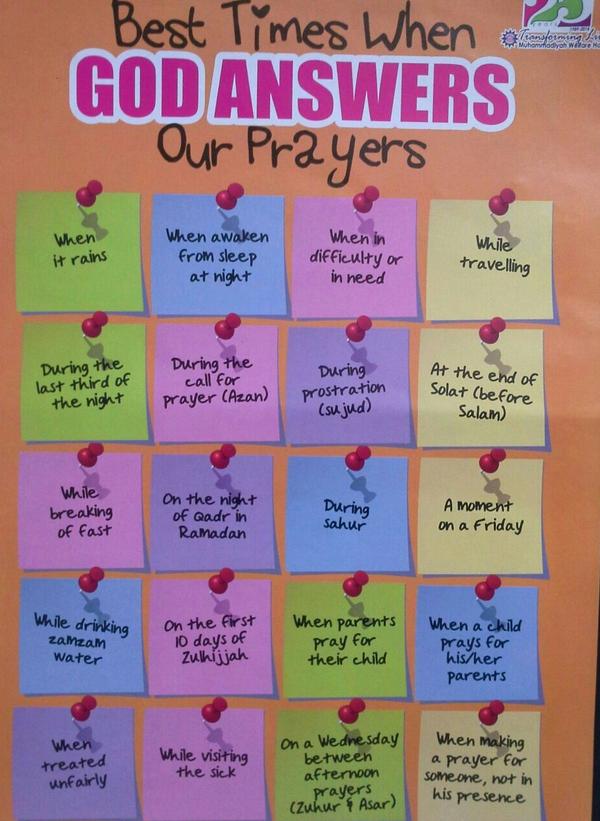 Best Times When
GOD ANSWERS
Our Prayers
25
years
Transforming
Muhammadiyah Welfare
When
it rains
When awaken
from sleep
at night
When in
difficulty or
in need
While
travelling
During the
last third of
the night
During the
call for
prayer (Azan)
During
prostration
(sujud)
At the end of
Solat (before
Salam)
While
breaking
of fast
On the night
of Qadr in
Ramadan
During
sahur
A moment
on a Friday
While drinking
zamzam
water
On the first
10 days of
Zulhijjah
When parents
pray for
their child
When a child
prays for
his/her
parents
When
treated
unfairly
While visiting
the sick
On a Wednesday
between
afternoon
prayers
(Zuhur & Asar)
When making
a prayer for
someone, not in
his presence